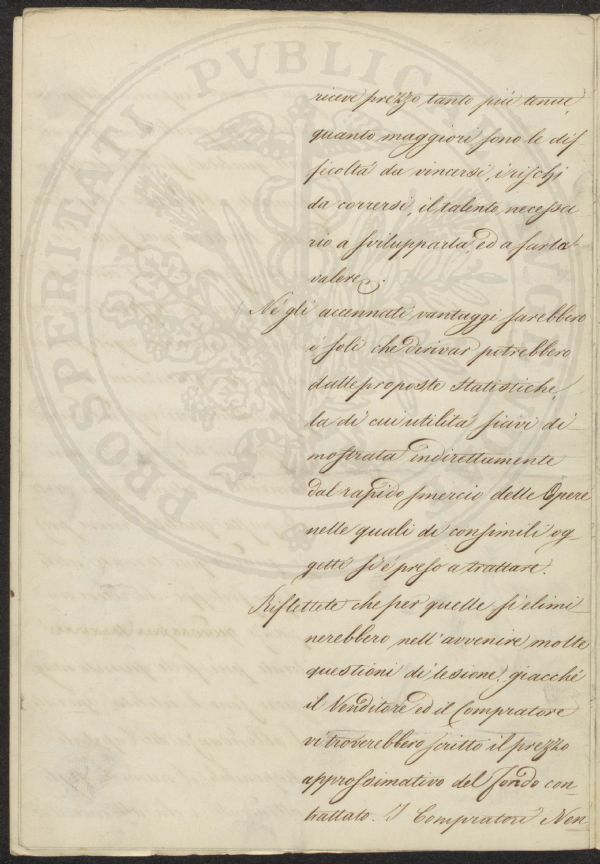 riceve prezzo tanto più tenue,
quanto maggiori sono le dif
ficoltà da vincersi, i rischj
da corrersi, il talento necessa
rio a svilupparla, ed a farla
valere.
Nè gli accennati vantaggi sarebbero
i soli che derivar potrebbero
dalle proposte Statistiche,
la di cui utilità siavi di
mostrata indirettamente
dal rapido smercio delle Opere
nelle quali di consimili og-
getti si è preso a trattare.
Riflettete che per quelle si elimi
nerebbero nell'avvenire molte
questioni di lesione: giacchè
il Venditore ed il Compratore
vi troverebbero scritto il prezzo
approssimativo del fondo con-
trattato. I Compratori Non
PROSPERITATI PVBLICAE